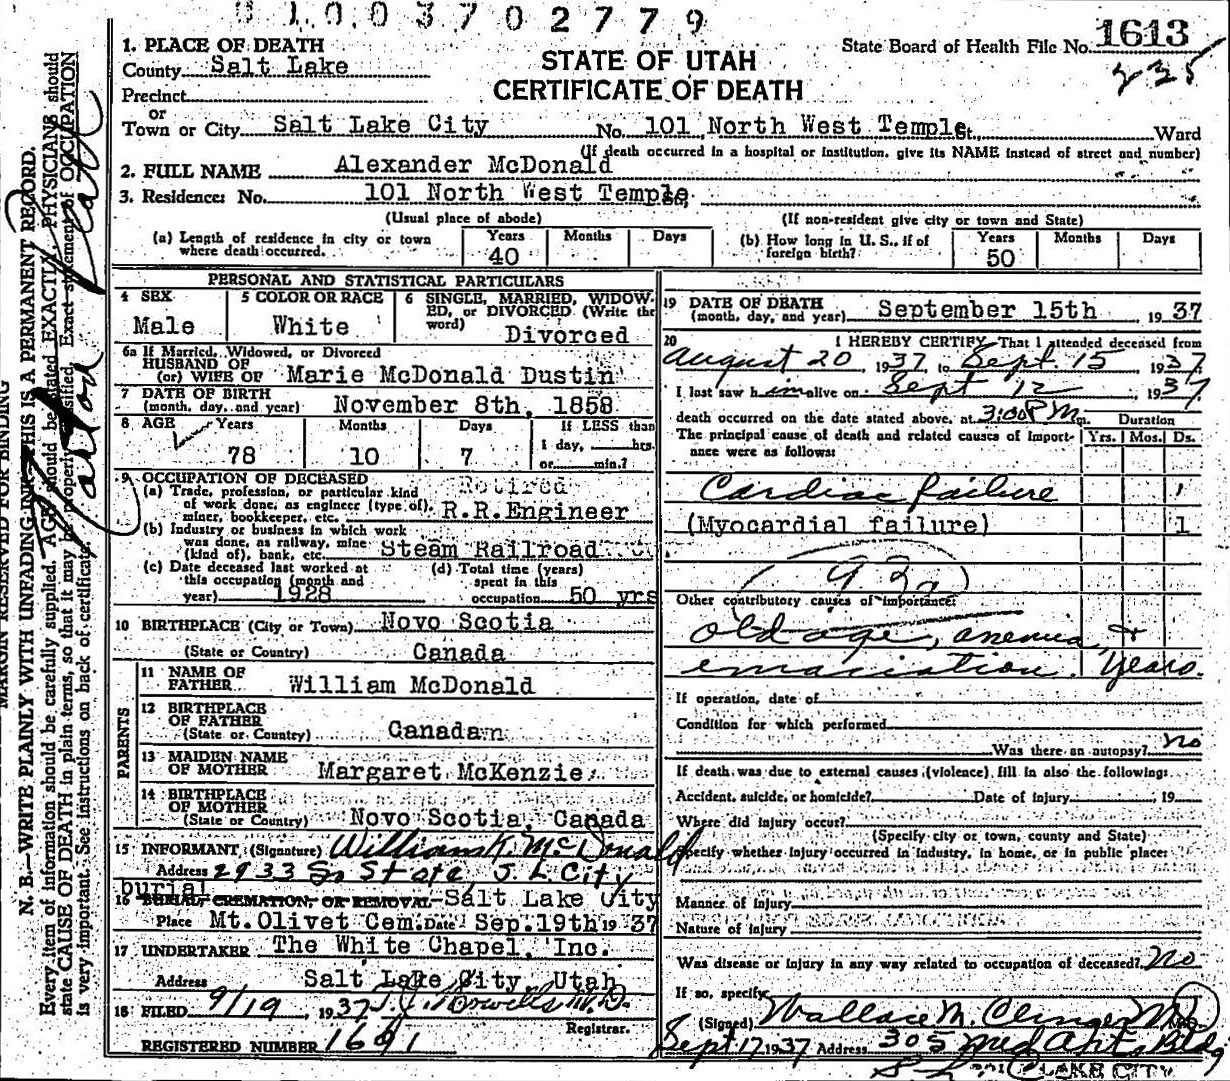 01003702779
State Board of Health File No. 1613
235
STATE OF UTAH
CERTIFICATE OF DEATH
1. PLACE OF DEATH
County Salt Lake
Precinct
or
Town or City Salt Lake City No. 101 North West Temple St. Ward
(If death occurred in a hospital or institution, give its NAME instead of street and number)
2. FULL NAME Alexander McDonald
3. Residence: No. 101 North West Temple
(Usual place of abode) (If non-resident give city or town and State)
(a) Length of residence in city or town where death occurred. Years 40 Months Days
(b) How long in U. S., if of foreign birth? Years 50 Months Days
PERSONAL AND STATISTICAL PARTICULARS
4 SEX Male
5 COLOR OR RACE White
6 SINGLE, MARRIED, WIDOWED, or DIVORCED (Write the word) Divorced
6a If Married, Widowed, or Divorced
HUSBAND OF
(or) WIFE OF Marie McDonald Dustin
7 DATE OF BIRTH
(month, day, and year) November 8th, 1858
8 AGE Years 78 Months 10 Days 7 If LESS than 1 day, hrs. or min.?
9 OCCUPATION OF DECEASED
(a) Trade, profession, or particular kind of work done, as engineer (type of), miner, bookkeeper, etc. Retired R.R.Engineer
(b) Industry or business in which work was done, as railway, mine (kind of), bank, etc. Steam Railroad
(c) Date deceased last worked at this occupation (month and year) 1928
(d) Total time (years) spent in this occupation 50 yrs
10 BIRTHPLACE (City or Town) Novo Scotia
(State or Country) Canada
PARENTS
11 NAME OF FATHER William McDonald
12 BIRTHPLACE OF FATHER
(State or Country) Canadan
13 MAIDEN NAME OF MOTHER Margaret McKenzie
14 BIRTHPLACE OF MOTHER
(State or Country) Novo Scotia, Canada
15 INFORMANT (Signature) William K. McDonald
Address 2933 So State S L City
burial
16 BURIAL, CREMATION, OR REMOVAL Salt Lake City
Place Mt. Olivet Cem. Date Sep. 19th 19 37
17 UNDERTAKER The White Chapel, Inc.
Address Salt Lake City, Utah
18 FILED 9/19, 1937
Registrar.
REGISTERED NUMBER 1691
19 DATE OF DEATH
(month, day, and year) September 15th 19 37
20 I HEREBY CERTIFY, That I attended deceased from
August 20, 1937, to Sept. 15, 1937
I last saw him alive on Sept 12, 1937
death occurred on the date stated above, at 3:00 P M m. Duration
The principal cause of death and related causes of importance were as follows: Yrs. Mos. Ds.
Cardiac failure 1
(Myocardial failure) 1
Other contributory causes of importance:
old age, anemia, &
emaciation. Years.
If operation, date of
Condition for which performed
Was there an autopsy? no
If death was due to external causes (violence), fill in also the following:
Accident, suicide, or homicide? Date of injury , 19
Where did injury occur?
(Specify city or town, county and State)
Specify whether injury occurred in industry, in home, or in public place:
Manner of injury
Nature of injury
Was disease or injury in any way related to occupation of deceased? No
If so, specify
(Signed) Wallace M. Clinger M.D.
Sept 17 1937 Address 305 Med Arts Bldg
LAKE CITY
MARGIN RESERVED FOR BINDING
N. B.—WRITE PLAINLY WITH UNFADING INK—THIS IS A PERMANENT RECORD.
Every item of information should be carefully supplied. AGE should be stated EXACTLY. PHYSICIANS should
state CAUSE OF DEATH in plain terms, so that it may be properly classified. Exact statement of OCCUPATION
is very important. See instructions on back of certificate.